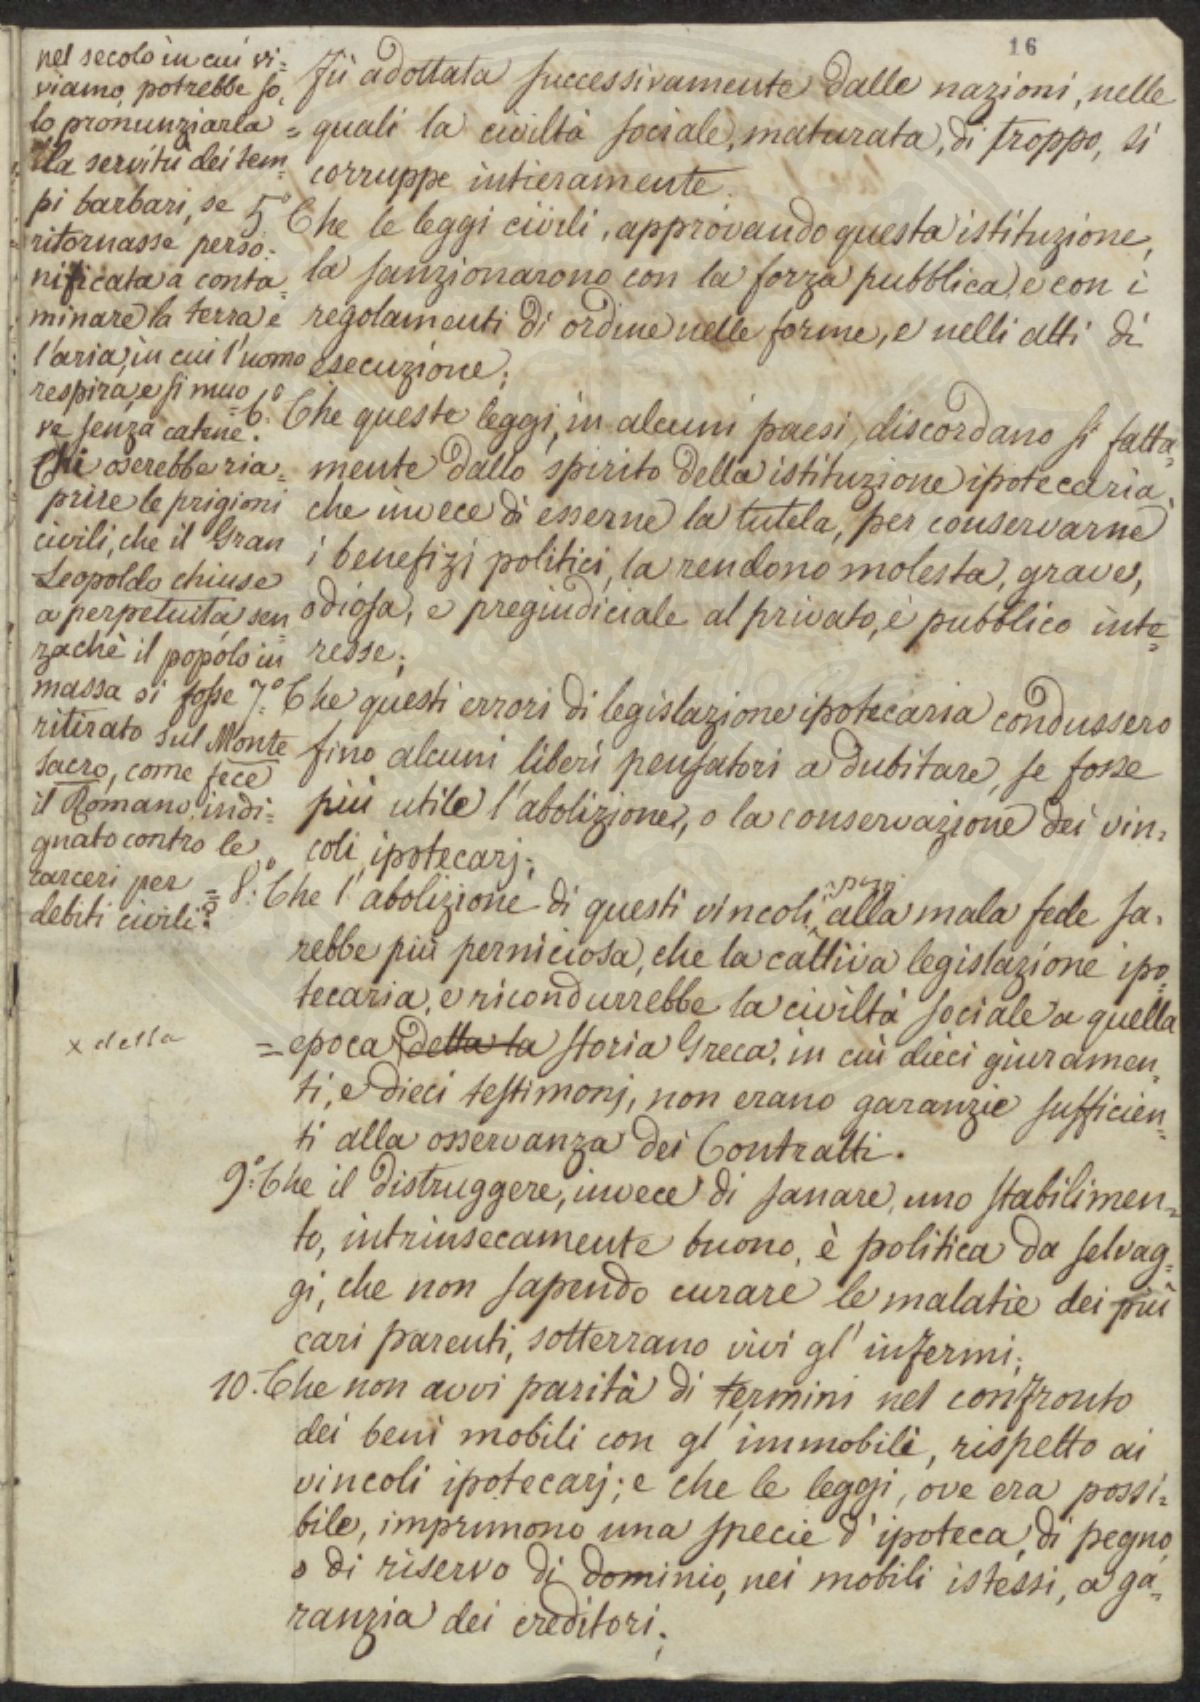 16
nel secolo in cui vi=
viamo, potrebbe so=
lo pronunziarla =
la servitù dei tem=
pi barbari, se
ritornasse perso=
nificata a conta=
minare la terra e
l'aria, in cui l'uomo
respira, e si muo=
ve senza catene.
Chi oserebbe ria=
prire le prigioni
civili, che il Gran
Leopoldo chiuse
a perpetuità sen=
zachè il popolo in
massa si fosse
ritirato sul Monte
sacro, come fece
il Romano indi=
gnato contro le
carceri per =
debiti civili?
x della
fù adottata successivamente dalle nazioni, nelle
quali la civiltà sociale, maturata, di troppo, si
corruppe intieramente.
5.° Che le leggi civili, approvando questa istituzione,
la sanzionarono con la forza pubblica, e con i
regolamenti di ordine nelle forme, e nelli atti di
esecuzione;
6.° Che queste leggi, in alcuni paesi, discordano si fatta=
mente dallo spirito della istituzione ipotecaria,
che invece di esserne la tutela, per conservarne
i benefizj politici, la rendono molesta, grave,
odiosa, e pregiudiciale al privato, e pubblico inte=
resse;
7.° Che questi errori di legislazione ipotecaria condussero
fino alcuni liberi pensatori a dubitare, se fosse
più utile l'abolizione, o la conservazione dei vin=
coli ipotecarj;
8.° Che l'abolizione di questi vincoli alla mala fede sa=
rebbe più perniciosa, che la cattiva legislazione ipo=
tecaria, e ricondurrebbe la civiltà sociale a quella
= epoca della la storia Greca, in cui dieci giuramen=
ti, e dieci testimonj, non erano garanzie sufficien=
ti alla osservanza dei Contratti.
9.° Che il distruggere, invece di sanare, uno stabilimen=
to, intrinsecamente buono, è politica da selvag=
gi, che non sapendo curare le malatie dei più
cari parenti, sotterrano vivi gl'infermi;
10. Che non avvi parità di termini nel confronto
dei beni mobili con gl'immobili, rispetto ai
vincoli ipotecarj; e che le leggi, ove era possi=
bile, imprimono una specie d'ipoteca, di pegno,
o di riservo di dominio, nei mobili istessi, a ga=
ranzia dei creditori;